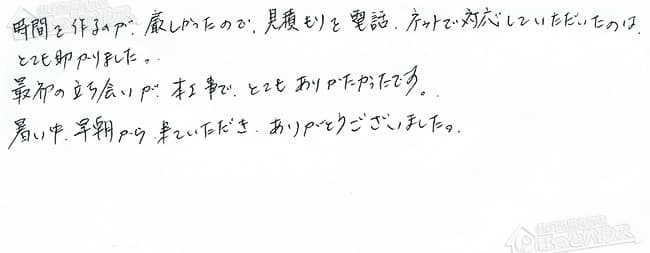 時間を作るのが、厳しかったので、見積もりを電話、ネットで対応していただいたのは、
とても助かりました。
最初の立ち会いが、本工事で、とてもありがたかったです。
暑い中、早朝から来ていただき、ありがとうございました。